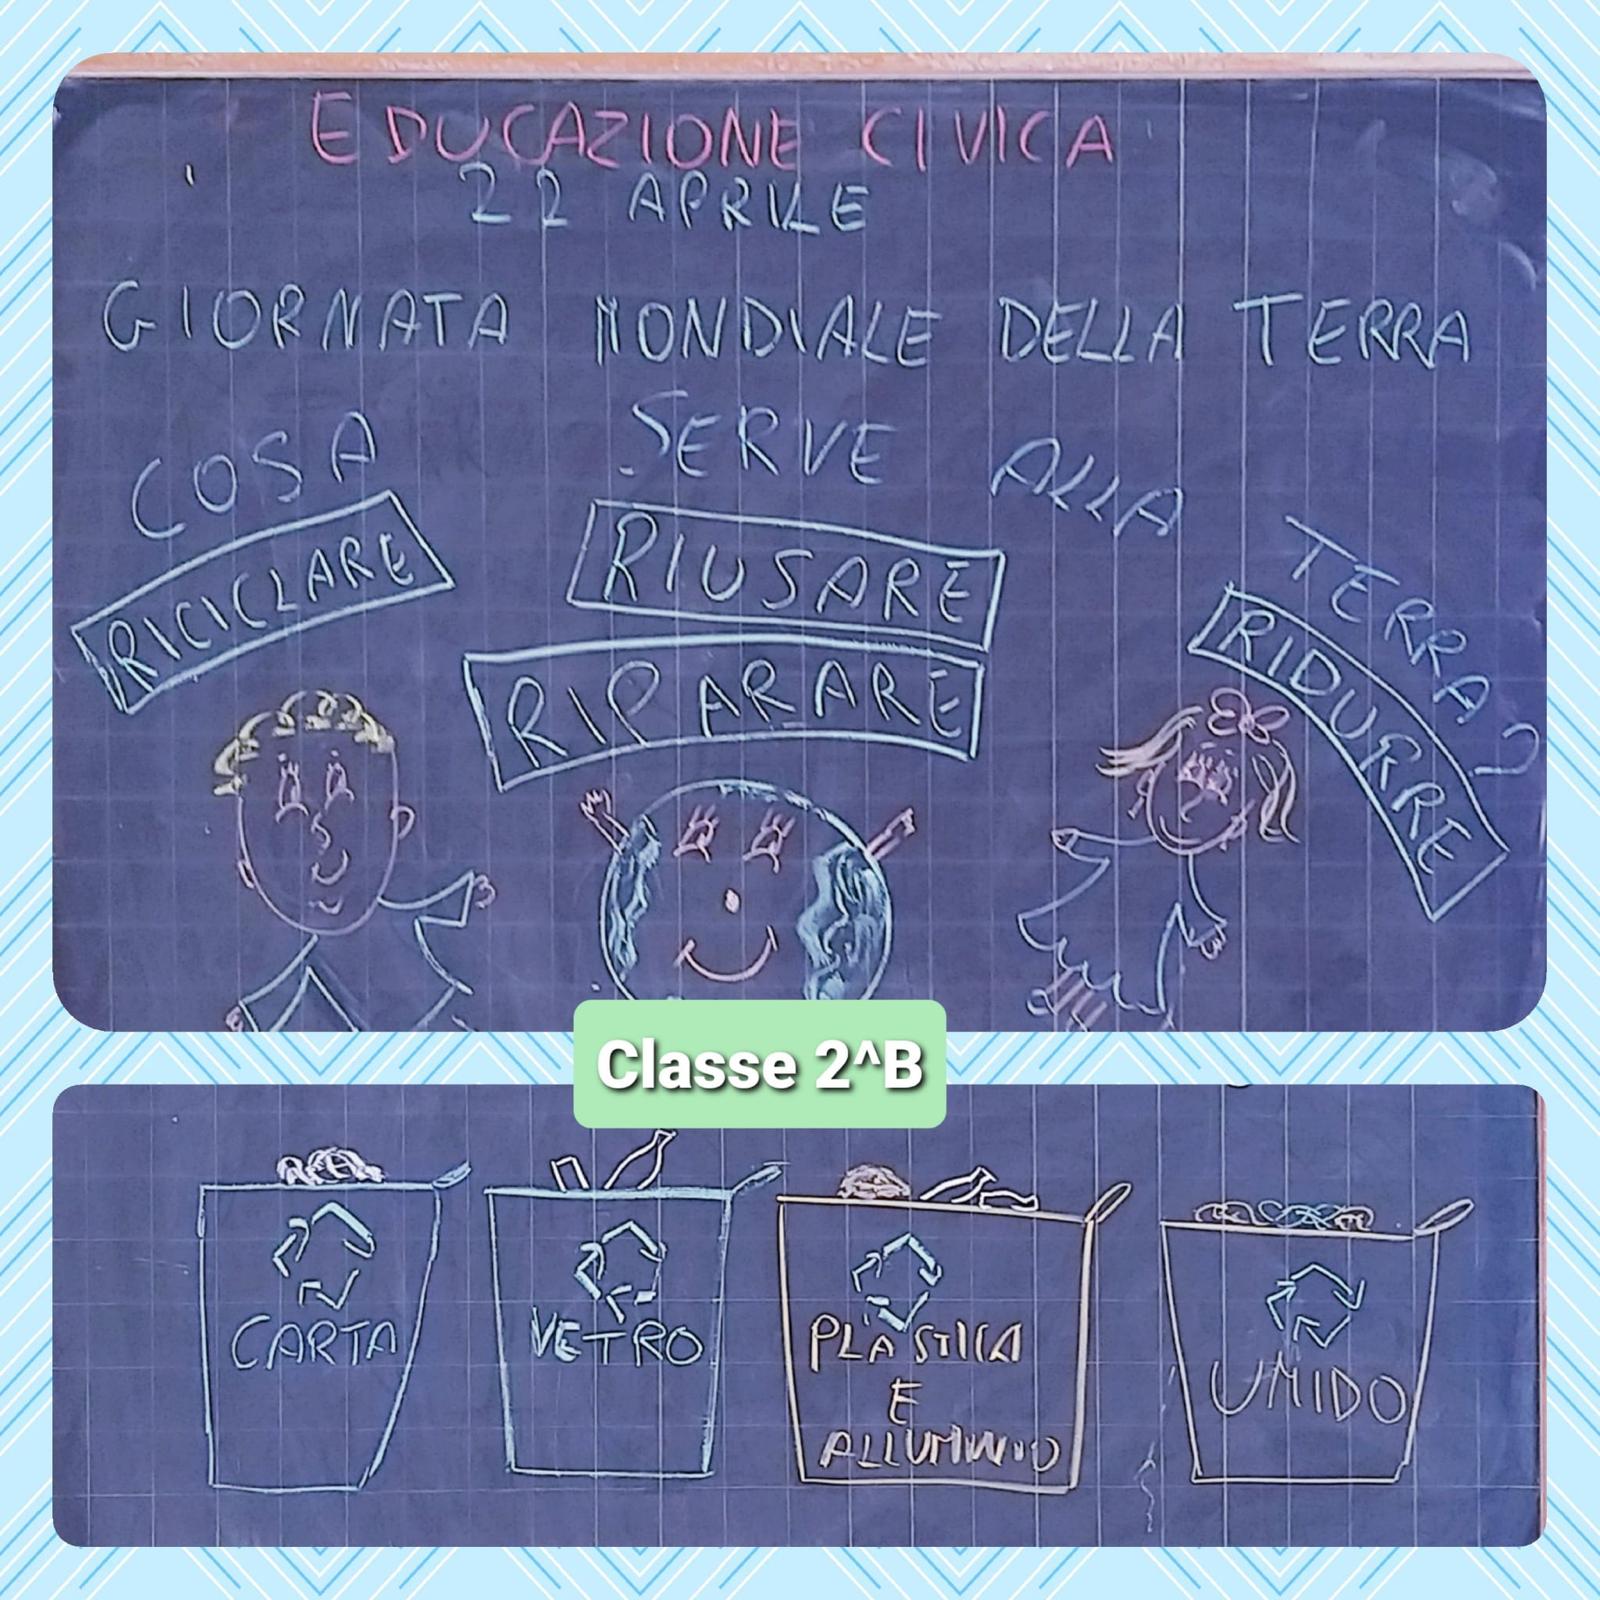 EDUCAZIONE CIVICA
22 APRILE
GIORNATA MONDIALE DELLA TERRA
COSA SERVE ALLA TERRA?
RICICLARE
RIUSARE
RIPARARE
RIDURRE
Classe 2^B
CARTA
VETRO
PLASTICA
E
ALLUMINIO
UMIDO